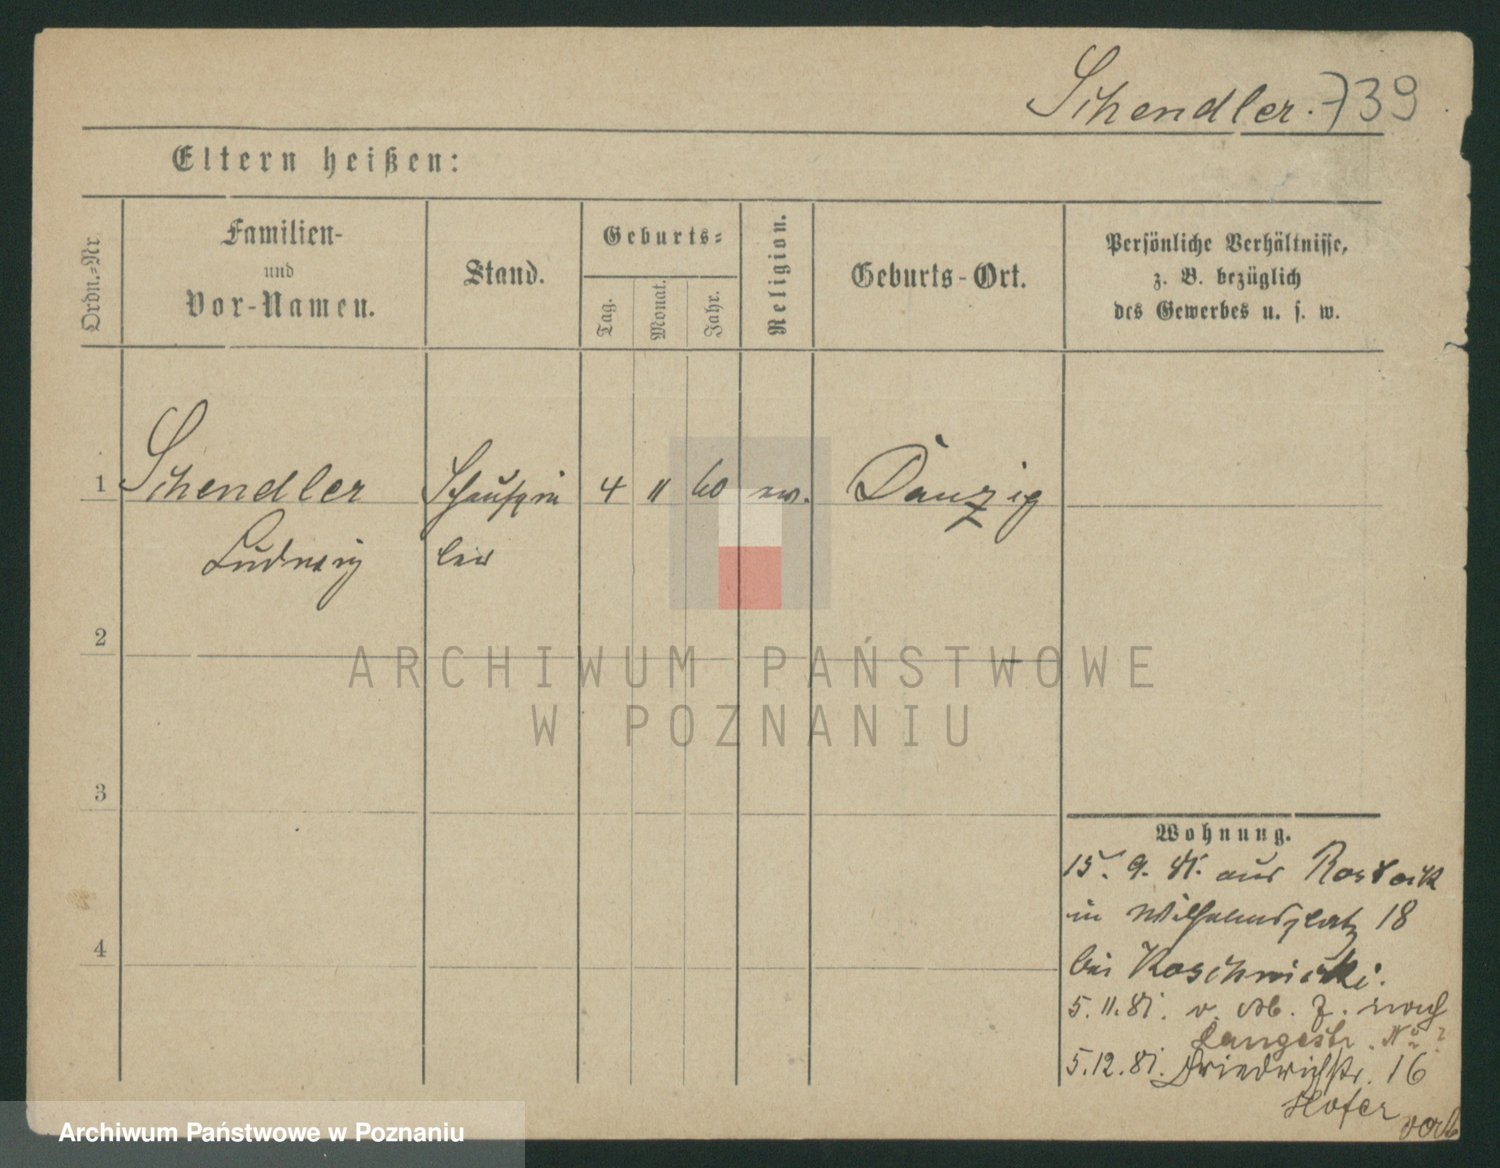 Schendler. 739
Eltern heißen:
Ordn.-Nr.
Familien-
und
Vor-Namen.
Stand.
Geburts-
Tag.
Monat.
Jahr.
Religion.
Geburts-Ort.
Persönliche Verhältnisse,
z. B. bezüglich
des Gewerbes u. s. w.
1 Schendler Schauspie 4 11 60 ev. Danzig
Ludwig ler
2
ARCHIWUM PAŃSTWOWE
W POZNANIU
3
Wohnung.
15. 9. 81. aus Rostock
in Wilhelmsplatz 18
4
bei Koschnicki.
5. 11. 81. v. Ab. z. nach
Langestr. No
5. 12. 81. Friedrichstr. 16
Hofer
Archiwum Państwowe w Poznaniu